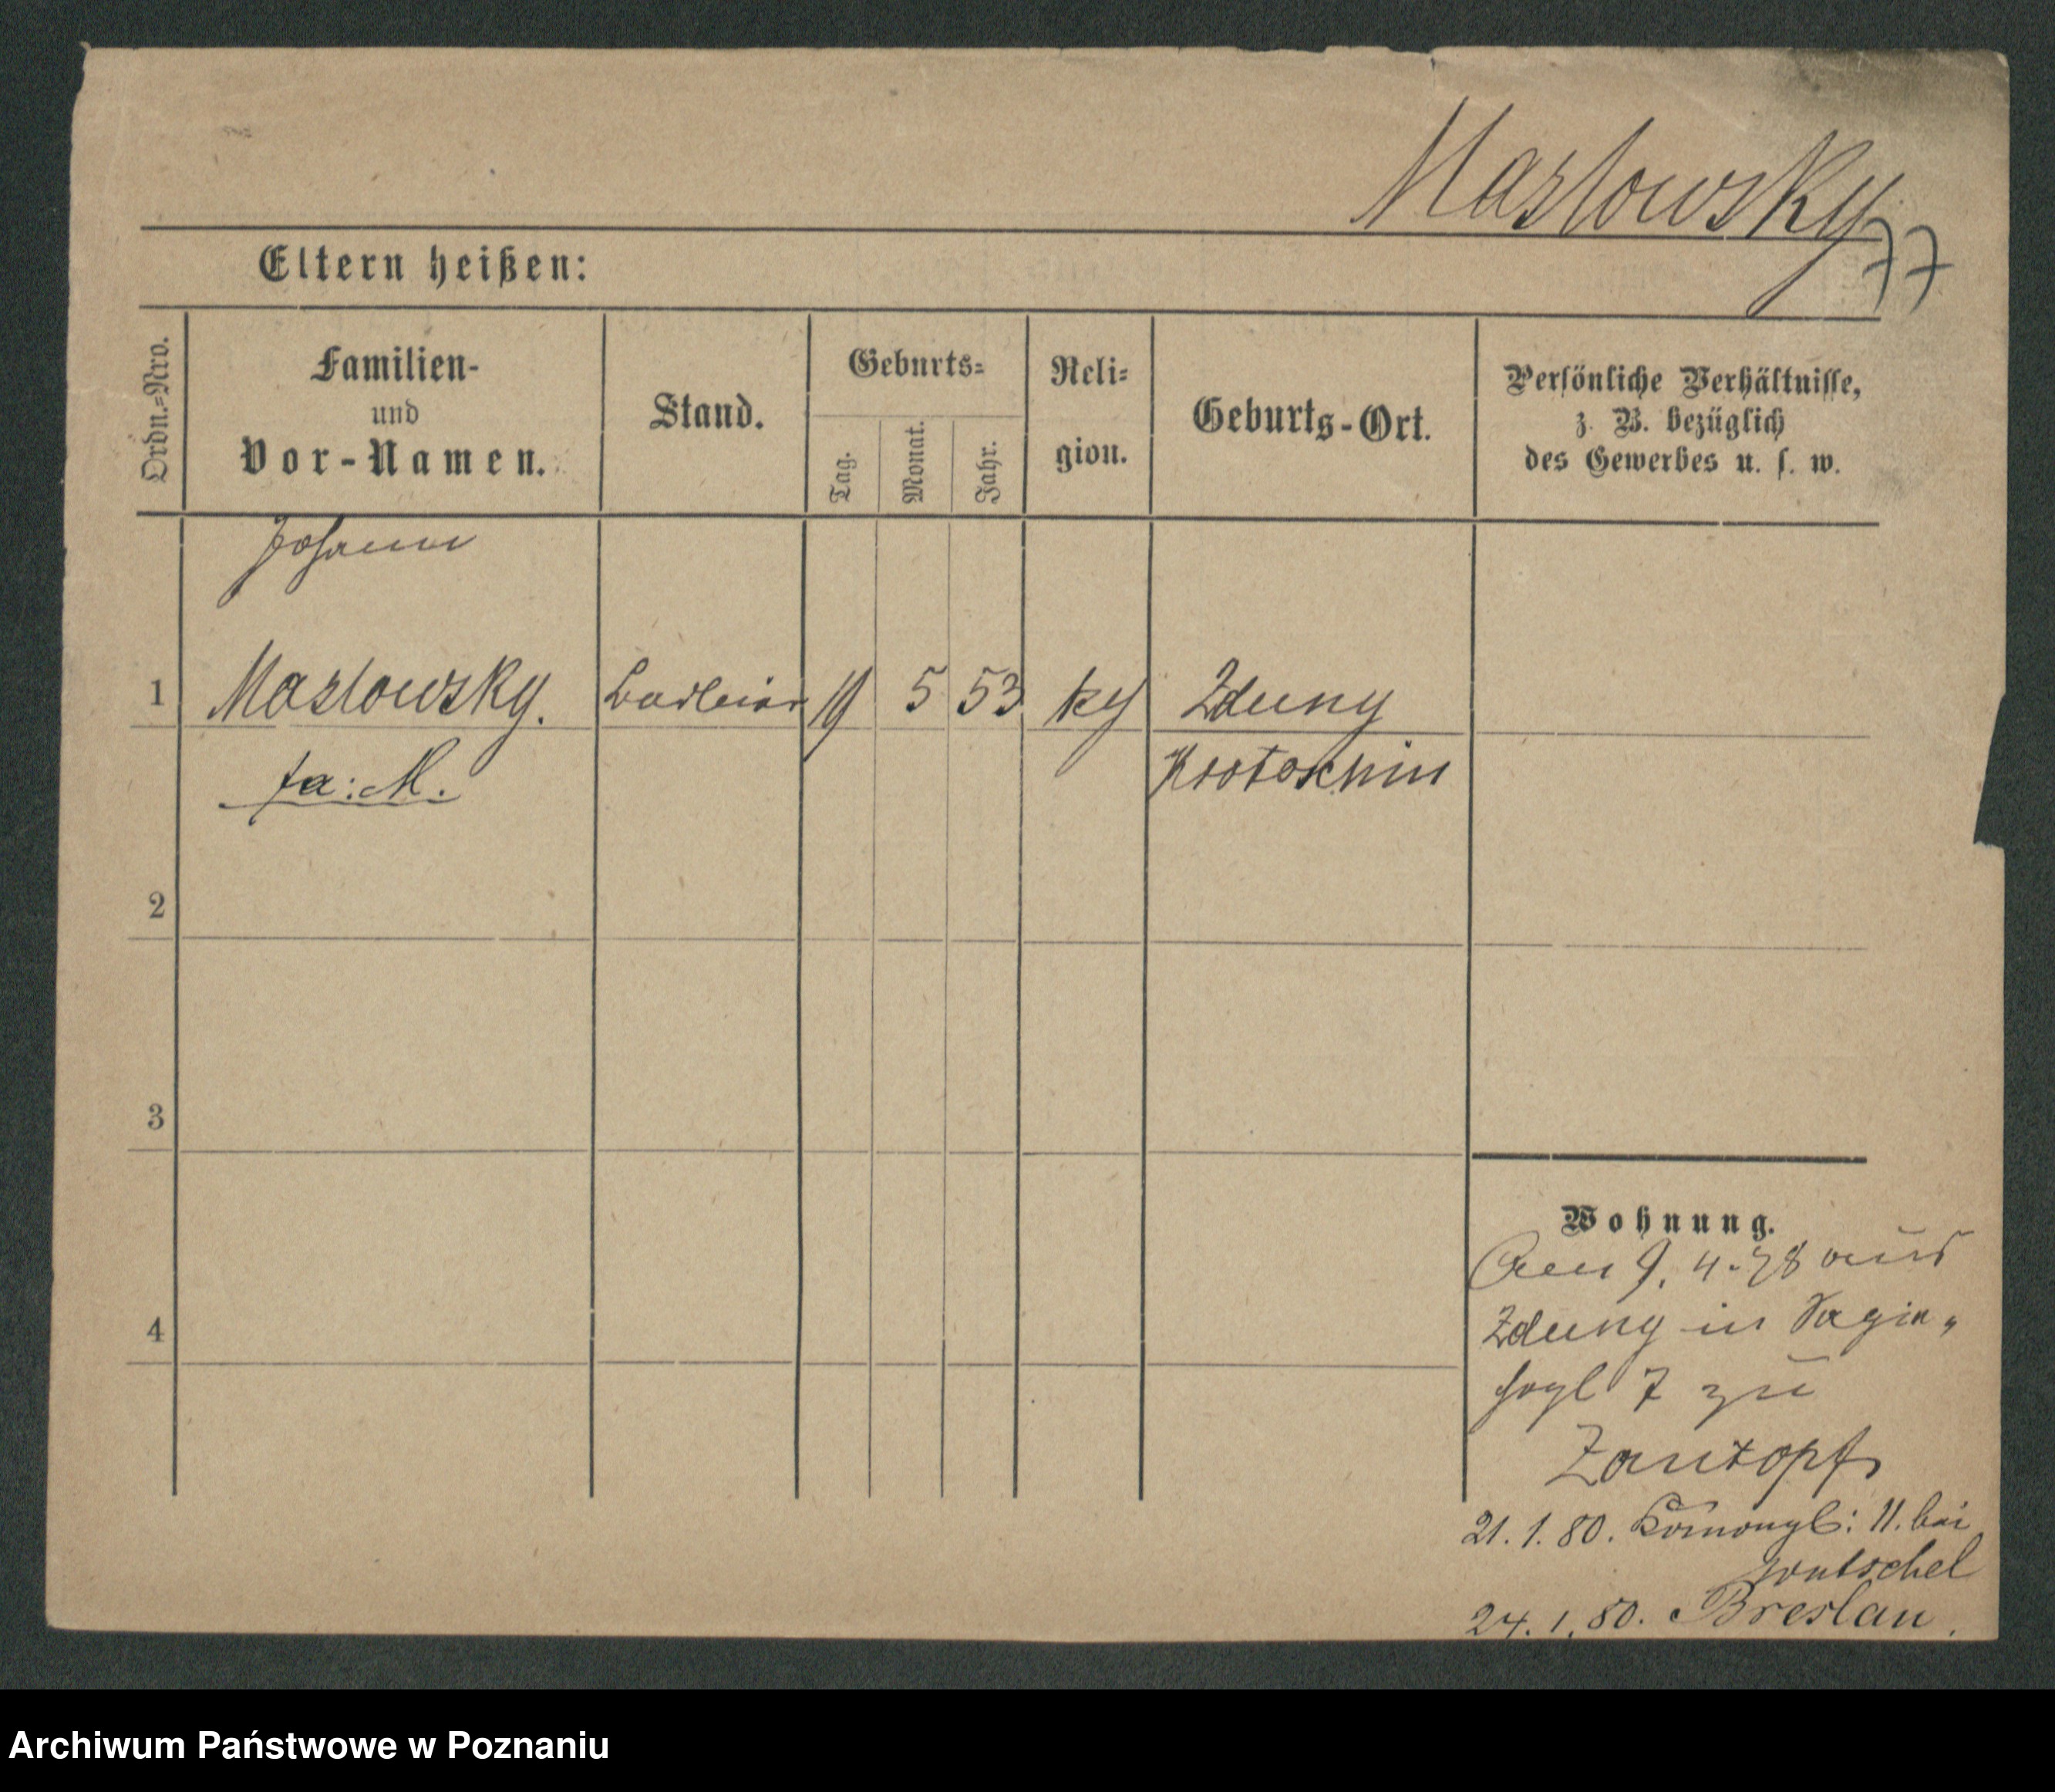 Maslowsky
77
Eltern heißen:
Ordn.=Nro.
Familien-
und
Vor-Namen.
Stand.
Geburts=
Tag.
Monat.
Jahr.
Reli=
gion.
Geburts-Ort.
Persönliche Verhältnisse,
z. B. bezüglich
des Gewerbes u. s. w.
Johann
1 Maslowsky. Barbier 19 5 53 Zduny
fa: M. Krotoschin
2
3
4
Wohnung.
9. 4. 78 aus
Zduny in
7 zu
21. 1. 80. 11. bei
24. 1. 80. Breslau.
Archiwum Państwowe w Poznaniu